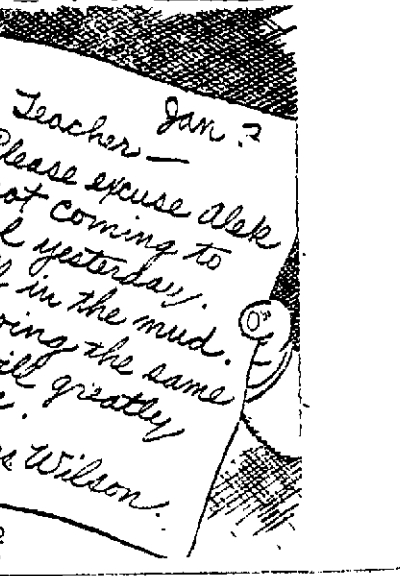 Jan ?
Teacher —
Please excuse Alek
not coming to
yesterday.
in the mud.
oing the same
ill greatly
Wilson.